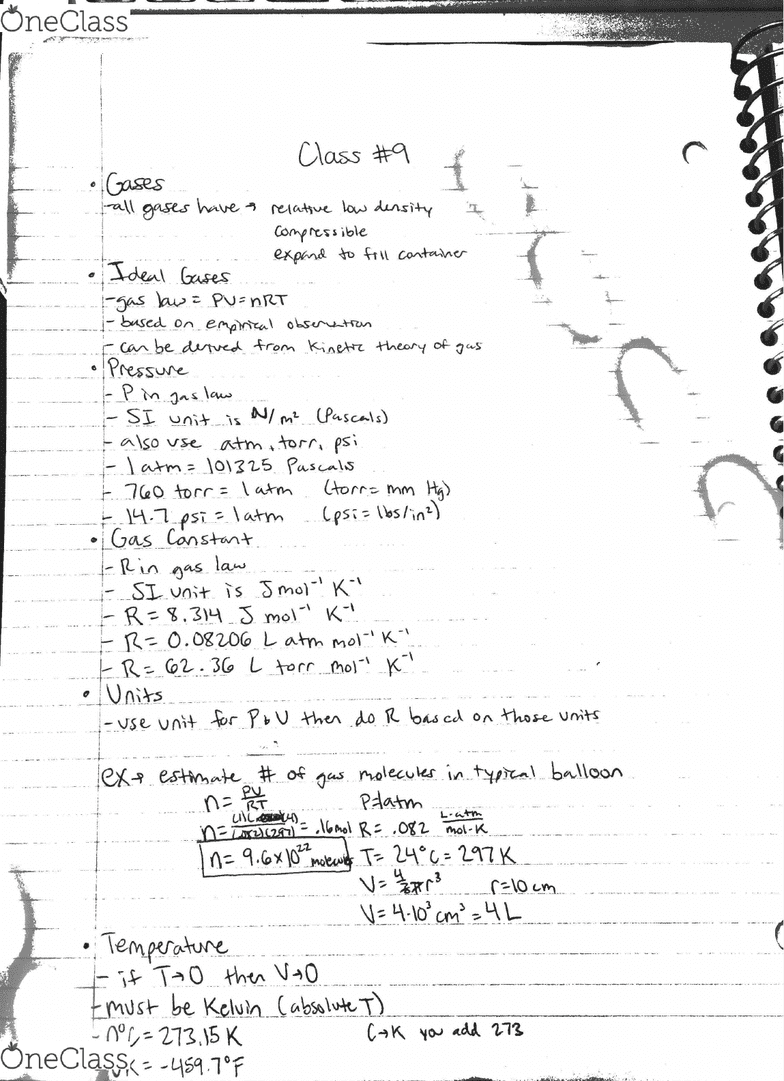 OneClass
Class #9
• Gases
-all gases have → relative low density
compressible
expand to fill container
• Ideal Gases
-gas law = PV=nRT
-based on empirical observation
-can be derived from kinetic theory of gas
• Pressure
- P in gas law
- SI unit is N/m² (Pascals)
- also use atm, torr, psi
- 1 atm = 101325 Pascals
- 760 torr = 1 atm (torr = mm Hg)
- 14.7 psi = 1 atm (psi = lbs/in²)
• Gas Constant
- R in gas law
- SI unit is J mol⁻¹ K⁻¹
- R = 8.314 J mol⁻¹ K⁻¹
- R = 0.08206 L atm mol⁻¹ K⁻¹
- R = 62.36 L torr mol⁻¹ K⁻¹
• Units
-use unit for P & V then do R based on those units
ex→ estimate # of gas molecules in typical balloon
n = PV/RT P=1atm
n = (1)(4)/(.082)(297) = .16mol R = .082 L·atm/mol·K
n = 9.6×10²² molecules T = 24°C = 297 K
V = 4/3πr³ r=10 cm
V = 4·10³ cm³ = 4 L
• Temperature
- if T→0 then V→0
-must be Kelvin (absolute T)
- 0°C = 273.15 K C→K you add 273
OneClass
K = -459.7°F